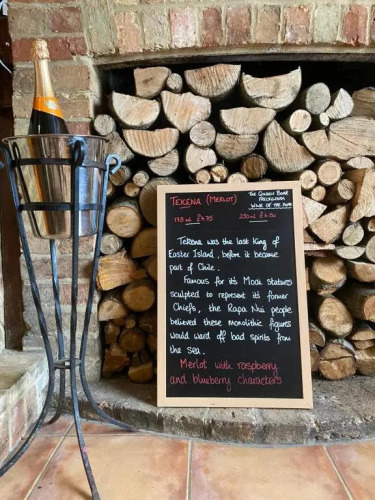 TEKENA (MERLOT)
THE GOLDEN BALL
WINE OF THE
175ml £4.75
250ml £6.50
Tekena was the last King of
Easter Island, before it became
part of Chile.
Famous for it's Moai statues
sculpted to represent its former
Chiefs, the Rapa Nui people
believed these monolithic figures
would ward off bad spirits from
the sea.
Merlot with raspberry
and blueberry characters